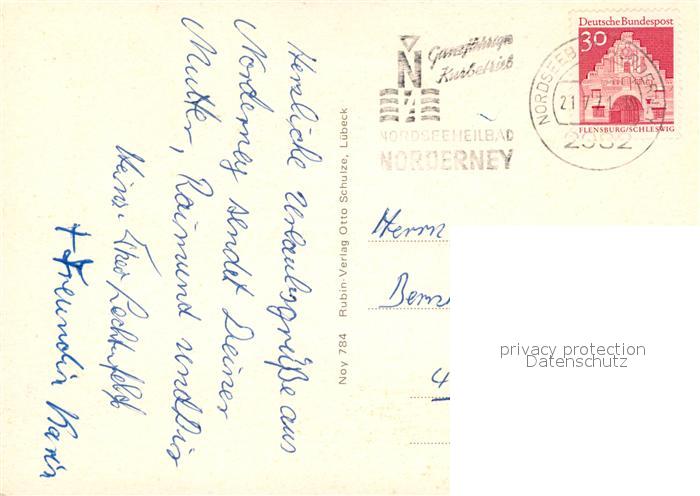 Herzliche Urlaubsgrüße aus
Norderney sendet Deiner
Mutter, Raimund und Dir
Heinz
+ Freundin Karin
Noy 784 Rubin-Verlag Otto Schulze, Lübeck
N
Ganzjähriger
Kurbetrieb
NORDSEEHEILBAD
NORDERNEY
NORDSEEH
21.7.71
2982
Deutsche Bundespost
30
FLENSBURG/SCHLESWIG
Herrn
4
privacy protection
Datenschutz